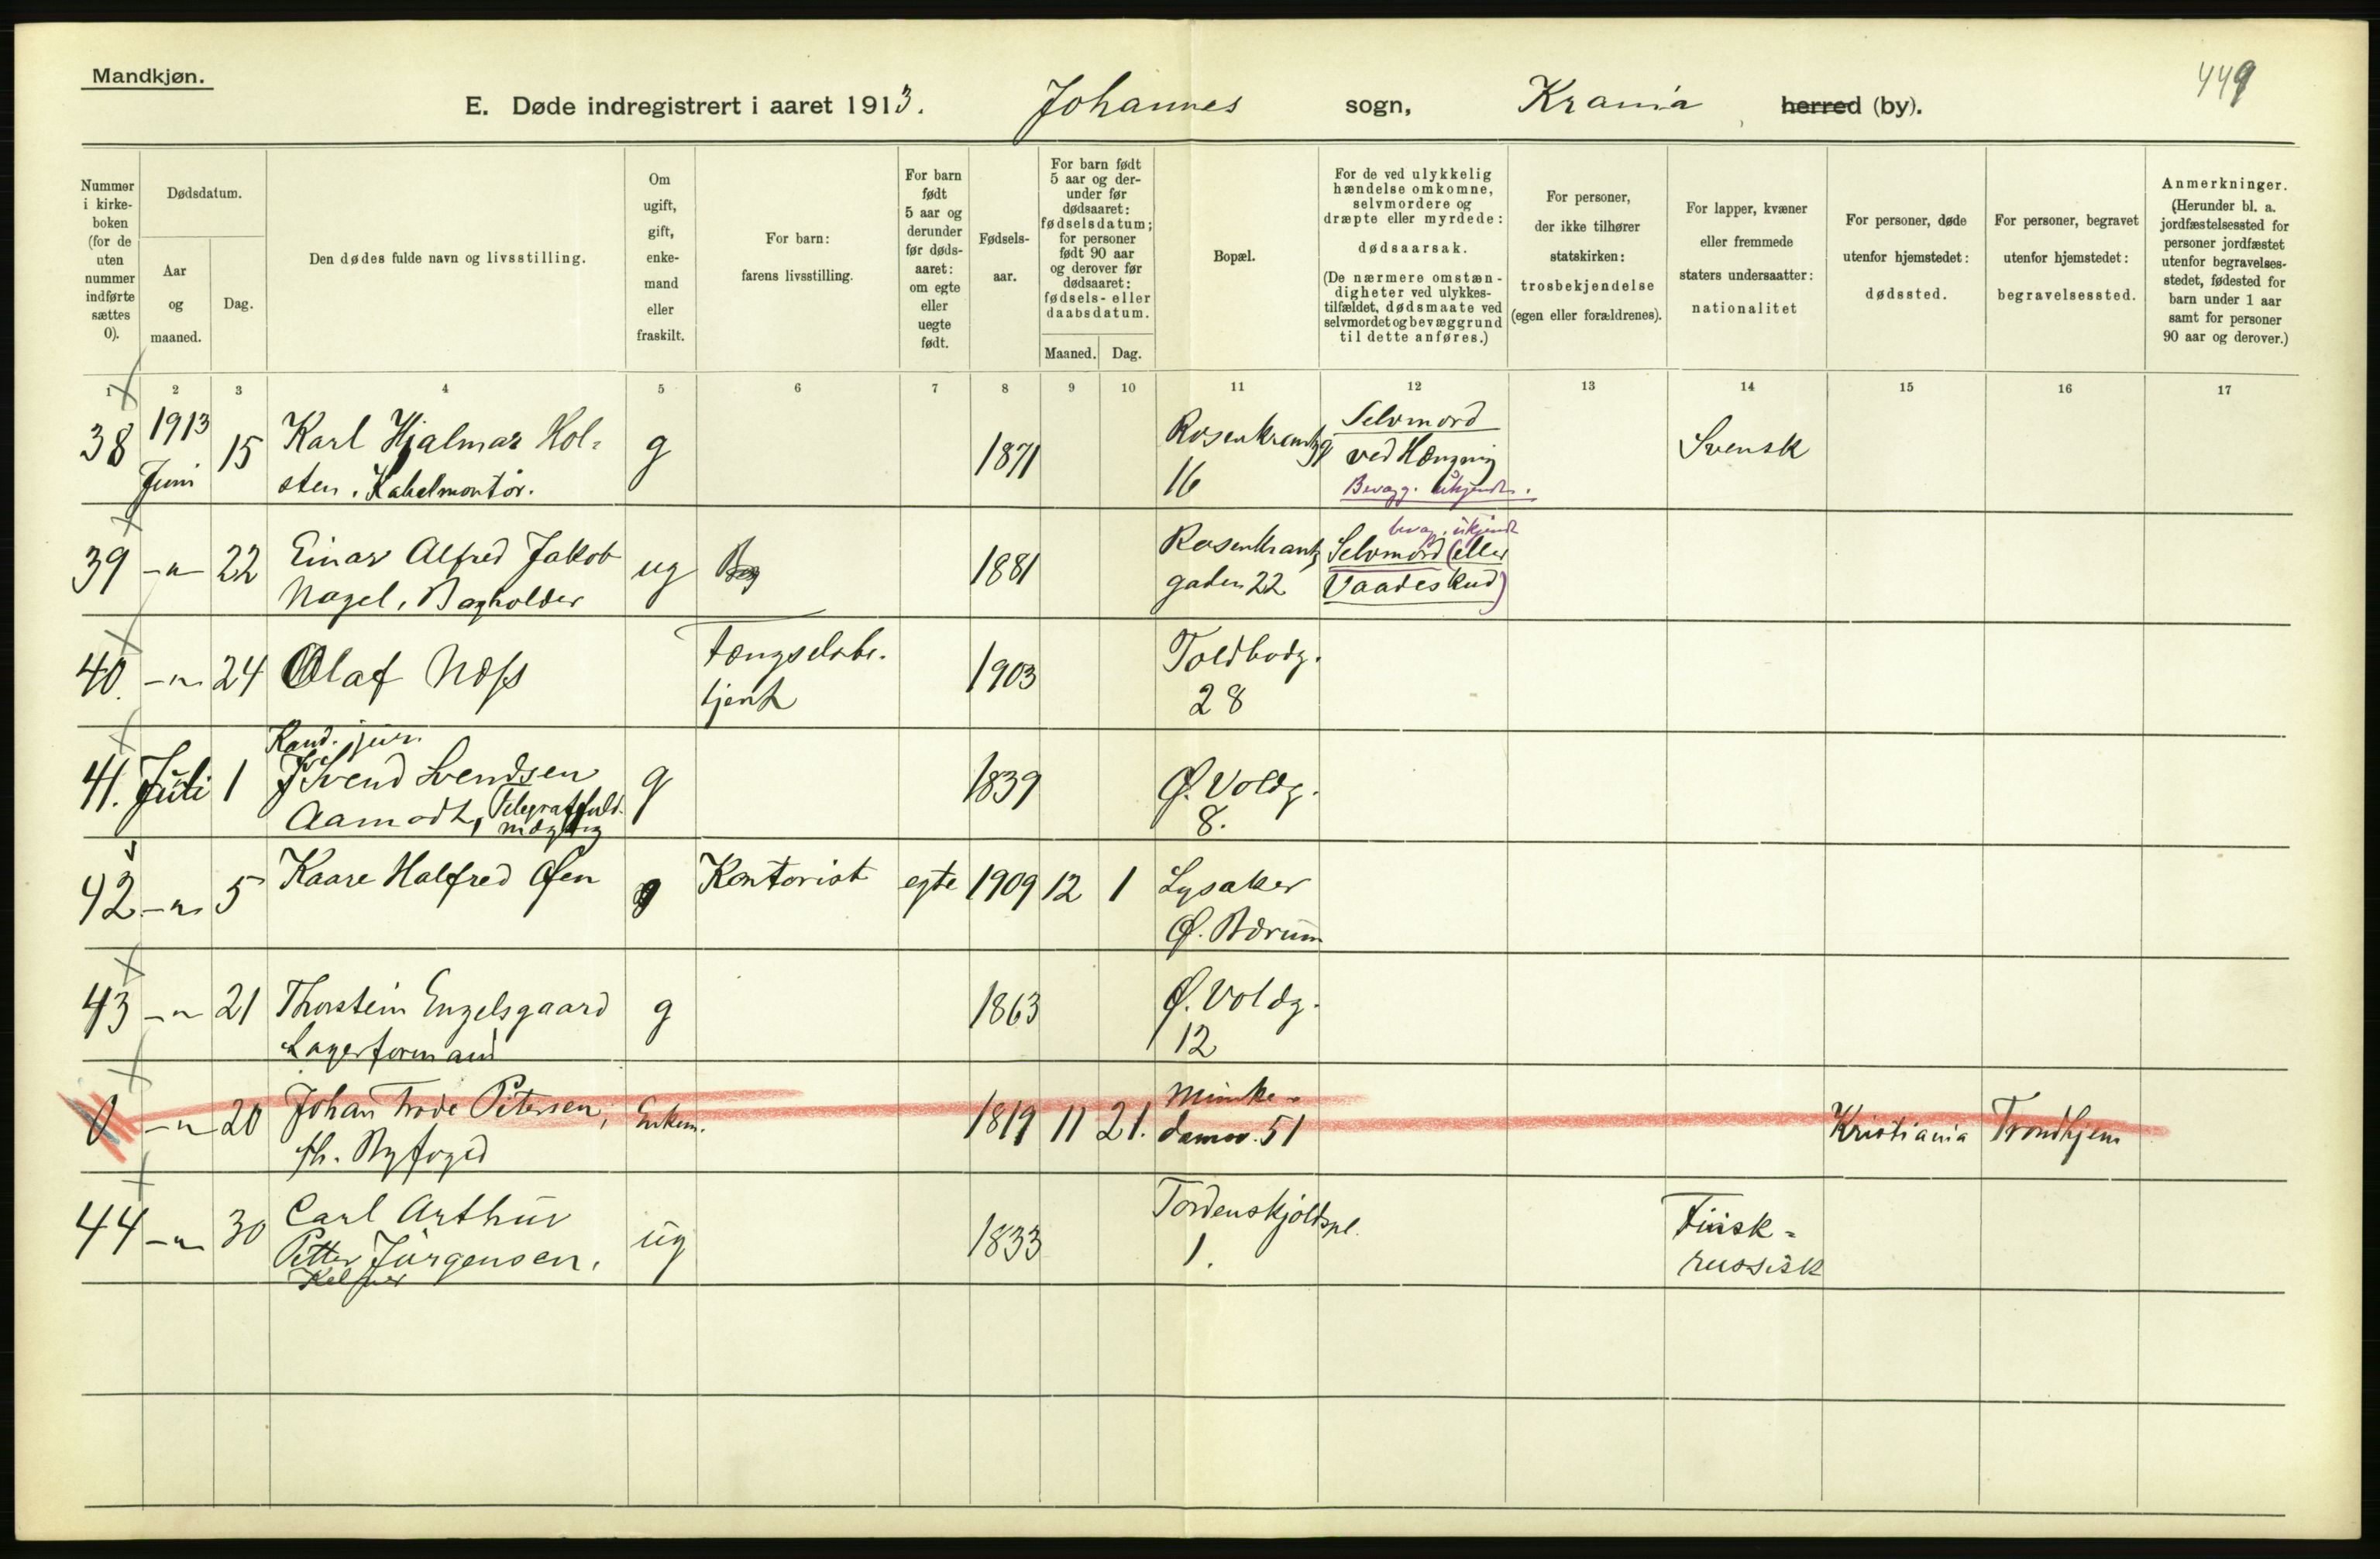 Mandkjøn.
449
E. Døde indregistrert i aaret 1913. Johannes sogn, Krania herred (by).
Nummer i kirke-boken (for de uten nummer indførte sættes 0).
Dødsdatum.
Aar og maaned.
Dag.
Den dødes fulde navn og livsstilling.
Om ugift, gift, enke-mand eller fraskilt.
For barn: farens livsstilling.
For barn født 5 aar og derunder før døds-aaret: om egte eller uegte født.
Fødsels-aar.
For barn født 5 aar og der-under før dødsaaret: fødselsdatum; for personer født 90 aar og derover før dødsaaret: fødsels- eller daabsdatum.
Maaned. Dag.
Bopæl.
For de ved ulykkelig hændelse omkomne, selvmordere og dræpte eller myrdede: dødsaarsak. (De nærmere omstæn-digheter ved ulykkes-tilfældet, dødsmaate ved selvmordet og bevæggrund til dette anføres.)
For personer, der ikke tilhører statskirken: trosbekjendelse (egen eller forældrenes).
For lapper, kvæner eller fremmede staters undersaatter: nationalitet
For personer, døde utenfor hjemstedet: dødssted.
For personer, begravet utenfor hjemstedet: begravelsessted.
Anmerkninger. (Herunder bl. a. jordfæstelsessted for personer jordfæstet utenfor begravelses-stedet, fødested for barn under 1 aar samt for personer 90 aar og derover.)
1 2 3 4 5 6 7 8 9 10 11 12 13 14 15 16 17
38 1913 Juni 15 Karl Hjalmar Hol-
sten. Kabelmontør. g 1871 Rosenkrantzg 16 Selvmord ved Hængning Bevægg. ukjendt. Svensk
39 -"- 22 Einar Alfred Jakob
Nagel, Bogholder ug 1881 Rosenkrantz gaden 22 bevæg. ukjendt Selvmord (eller Vaadeskud)
40. -"- 24 Olaf Næss Fængselsbe-
tjent 1903 Toldbodg. 28
41. Juli 1 Kand. jur. Svend Svendsen
Aamodt, Telegraffuld-
mægtig g 1839 Ø. Voldg. 8.
42 -"- 5 Kaare Halfred Øen Kontorist egte 1909 12 1 Lysaker Ø. Bærum
43 -"- 21 Thorstein Engelsgaard
Lagerformand g 1863 Ø. Voldg. 12
0 -"- 20 Johan Trode Petersen,
fh. Byfoged Enkem. 1819 11 21. Munke-
damsv. 51 Kristiania Trondhjem
44 -"- 30 Carl Arthur
Petter Jürgensen.
Kelner ug 1833 Tordenskjoldspl. 1. Finsk-
russisk